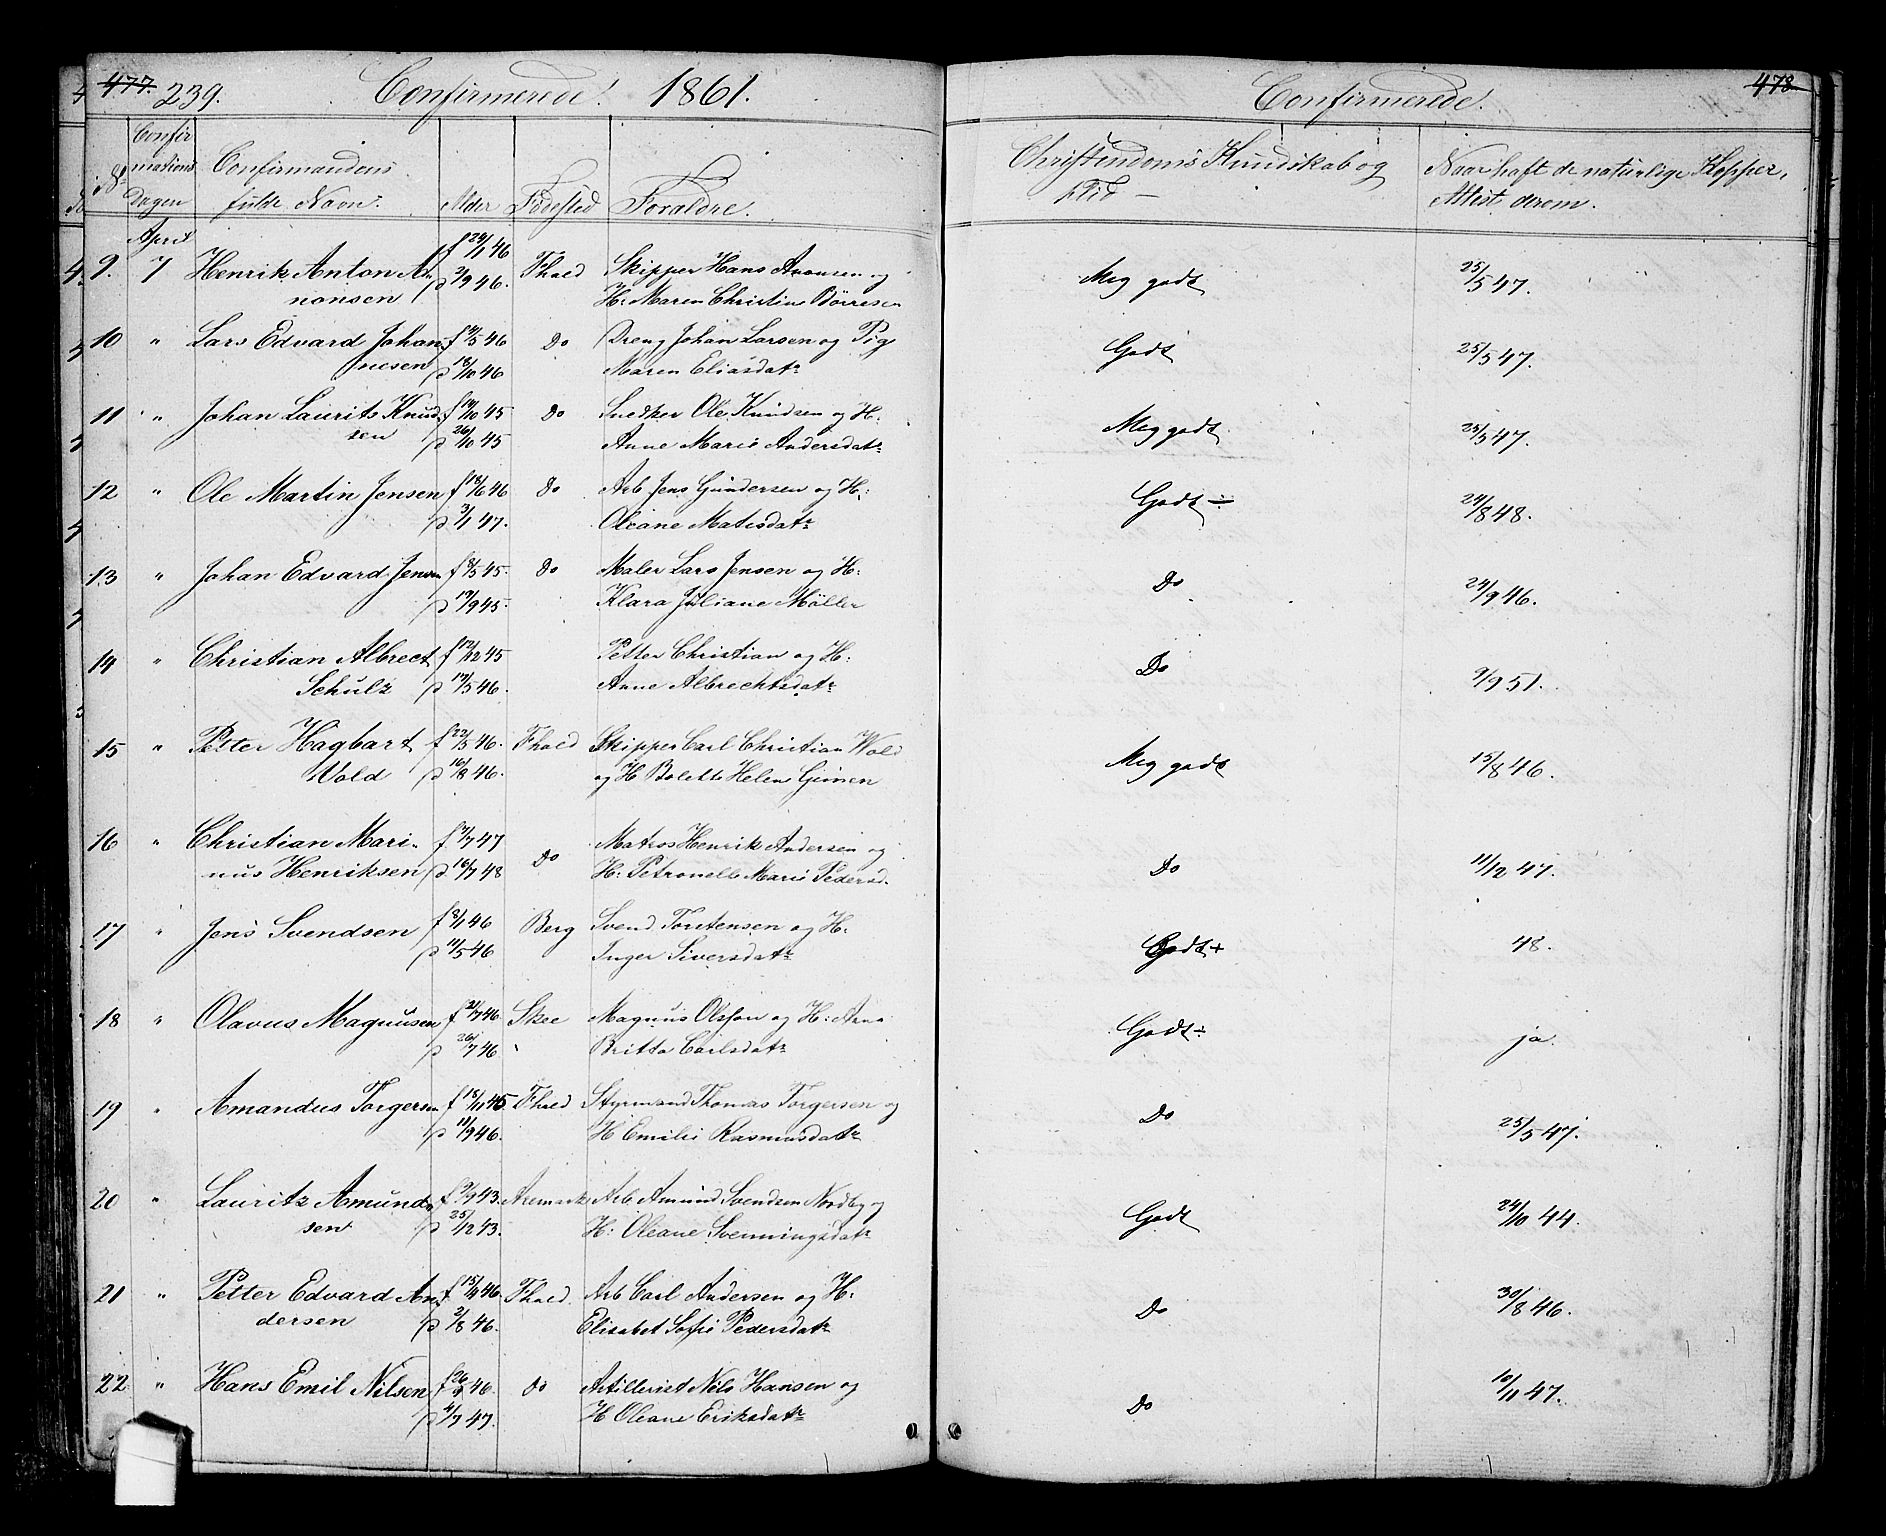 477. 239. Confirmerede. 1861.
Confirmerede. 478
No Confirmations Dagen Confirmandens fulde Navn. Alder Fødested Forældre. Christendoms Kundskab og Flid — Naar haft de naturlige Kopper, Attest derom.
April
9. 7 Henrik Anton Annonsen f 24/1 46 d 2/9 46. Fhald Skipper Hans Anonsen og Meg godt 25/5 47.
H: Maren Christine Börresen
10 " Lars Edvard Johannesen f 4/5 46 d 18/10 46 Do Dreng Johan Larsen og Pig Godt 25/5 47.
Maren Eliasdatr
11 " Johan Laurits Knudsen f 14/10 45 d 26/10 45 Do Snedker Ole Knudsen og H: Meg godt 25/5 47.
Anne Marie Andersdatr
12 " Ole Martin Jensen f 18/6 46 d 3/1 47. Do Arb Jens Gundersen og H: Godt ÷ 24/8 48.
Oleane Matisdatr
13 " Johan Edvard Jensen f 8/5 45. d 14/9 45. Do Maler Lars Jensen og H: Do 24/9 46.
Klara Juliane Möller
14 " Christian Albrect Schulz f 12/12 45 d 17/5 46. Petter Christian og H: Do 9/9 51.
Anne Albrechtsdatr
15 " Petter Hagbart Wold f 22/5 46. d 16/8 46. Fhald Skipper Carl Christian Wold Meg godt 13/8 46.
og H Bolette Helene
16 " Christian Marinus Henriksen f 7/7 47 d 16/7 48 Do Matros Henrik Andersen og Do 11/12 47.
H: Petronelle Marie Pedersd.
17 " Jens Svendsen f 8/1 46 d 11/5 46 Berg Svend Torstensen og H: Godt + 48.
Inger Siversdatr
18 " Olavus Magnusen f 21/7 46. d 26/7 46 Skee Magnus Olsson og H: Anna Godt ÷ ja.
Britta Carlsdatr
19 " Amandus Torgersen f 18/11 45. d 11/9 46. Fhald Styrmand Thomas Torgersen og Do 25/5 47.
H Emilie Rasmusdatr
20 " Lauritz Amundsen f 9/9 43. d 25/12 43. Aremark Arb Amund Svendsen Nordby og Godt 24/10 44.
H: Oleane Svenningsdatr
21 " Petter Edvard Andersen f 15/4 46. d 2/8 46. Fhald. Arb Carl Andersen og H: Do 30/8 46.
Elisabet Sofie Pedersdatr
22 " Hans Emil Nilsen f 26/9 46. d 4/7 47. Do Artillerist Nils Hansen og Do 10/11 47.
H Oleane Eriksdatr